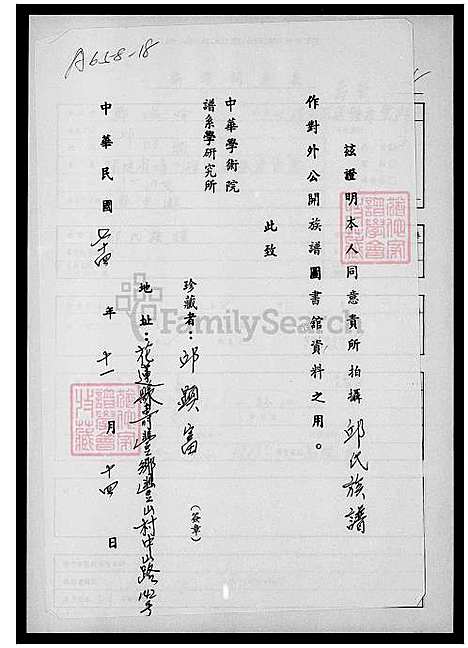 A658-18
茲證明本人同意貴所拍攝邱氏族譜
作對外公開族譜圖書館資料之用。
此致
中華學術院
譜系學研究所
珍藏者：邱顯富（簽章）
地址：花蓮縣壽豐鄉豐山村中山路142号
中華民國七十四年十一月十四日
FamilySearch